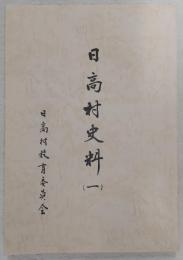 日高村史料
(一)
日高村教育委員会